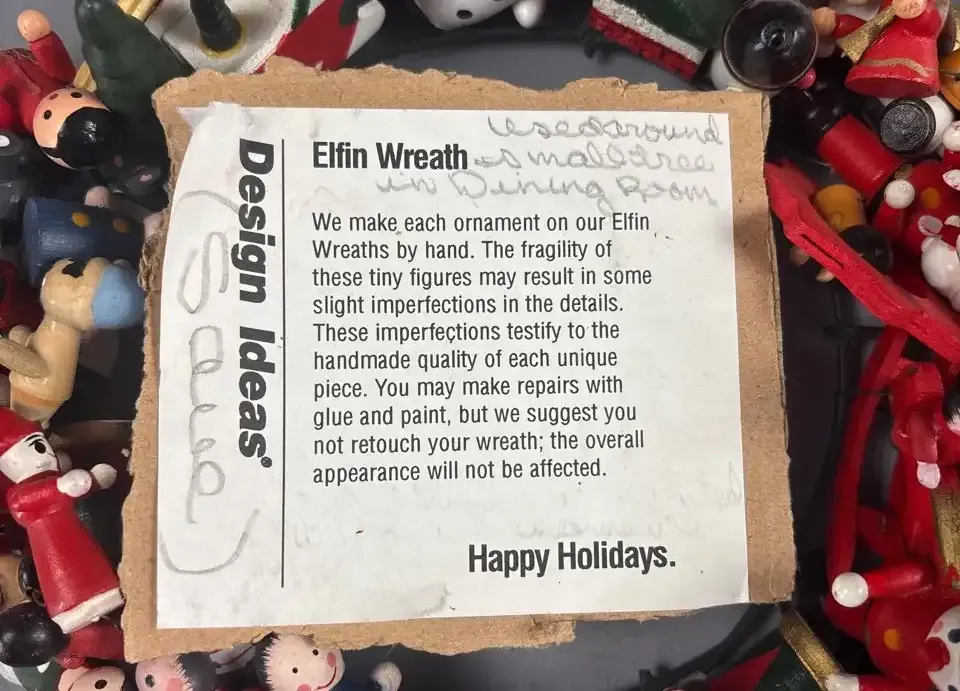 Design Ideas®
(Save)
Used around
small tree
in Dining Room
Elfin Wreath
We make each ornament on our Elfin
Wreaths by hand. The fragility of
these tiny figures may result in some
slight imperfections in the details.
These imperfections testify to the
handmade quality of each unique
piece. You may make repairs with
glue and paint, but we suggest you
not retouch your wreath; the overall
appearance will not be affected.
Happy Holidays.